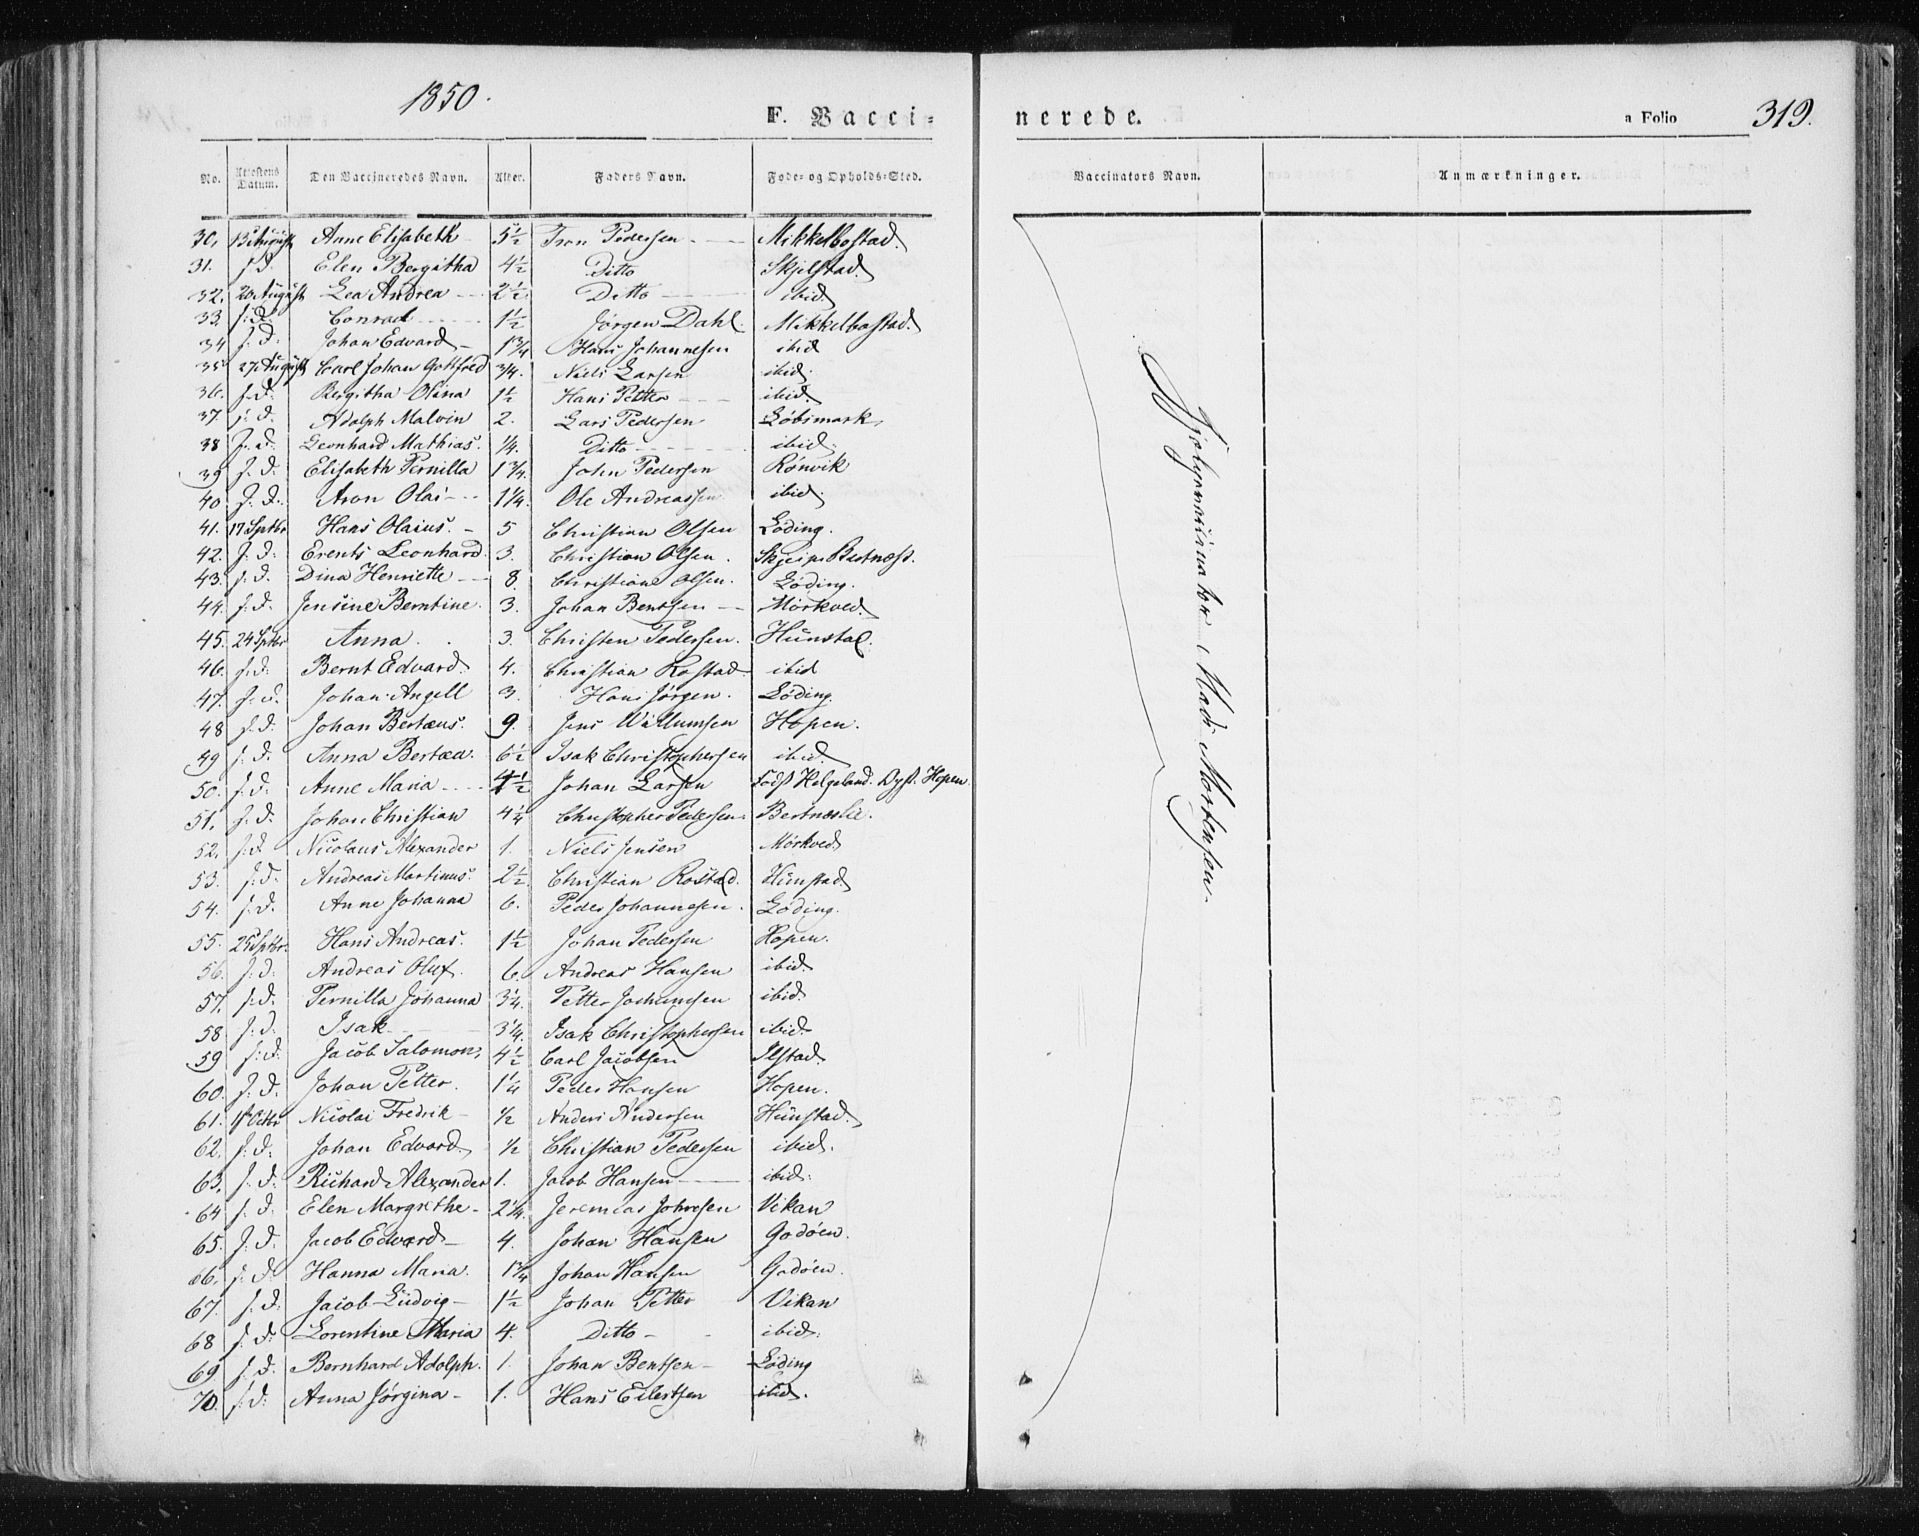 1850.
F. Vacci-
nerede.
a Folio 319.
No. Attestens Datum. Den Vaccineredes Navn. Alter. Faders Navn. Føde- og Opholds-Sted. Vaccinators Navn. Anmærkninger.
30. 13 August Anne Elisabeth 5½ Tron Pedersen Mikkelbostad.
31. s. d. Elen Bergitha 4½ Ditto Skjelstad.
32. 20 August Lea Andrea 2½ Ditto ibid.
33. s. d. Conrad 1½ Jørgen Dahl. Mikkelbostad.
34 s. d. Johan Edvard 1¾ Hans Johannesen ibid
35 27 August Carl Johan Gottfred ¾. Niels Larsen ibid.
36. s. d. Bergitha Olina 1½ Hans Petter ibid.
37 s. d. Adolph Malvin 2. Lars Pedersen Løbsmark.
38 s. d. Leonhard Mathias. ¼. Ditto ibid.
39 s. d. Elisabeth Pernilla 1¾. John Pedersen Rønvik
40 s. d. Aron Olai 1¼. Ole Andreassen ibid.
41. 17 Sptbr Hans Olaius. 5 Christian Olsen Løding.
42. s. d. Erents Leonhard. 3. Christian Olsen. Bertnæss.
43. s. d. Dina Henriette 8. Christian Olsen. Løding.
44. s. d. Jensine Berntine. 3. Johan Bentsen Mørkved.
45. 24 Sptbr Anna. 3. Christen Pedersen. Hunstad.
46. s. d. Bernt Edvard 4. Christian Rostad. ibid
47. s. d. Johan Angell 3. Hans Jørgen. Løding.
48 s. d. Johan Bertæus. 9. Jens Willumsen Hopen.
49 s. d. Anna Bertæa. 6½ Isak Christophersen ibid.
50. s. d. Anne Maria 4½ Johan Larsen Født Helgeland. Opst. Hopen.
51. s. d. Johan Christian 4¼ Christopher Pedersen. Bertnæslie.
52. s. d. Nicolaus Alexander 1. Niels Jensen Mørkved
53. s. d. Andreas Martinus. 2½. Christian Rostad. Hunstad
54. s. d. Anne Johanna 6. Peder Johannesen. Løding.
55. 25 Sptbr. Hans Andreas. 1½ Johan Pedersen Hopen.
56. s. d. Andreas Oluf. 6. Andreas Hansen ibid.
57. s. d. Pernilla Johanna 3¼. Petter Jochumsen ibid.
58. s. d. Isak 3¼. Isak Christophersen ibid.
59 s. d. Jacob Salomon. 4½ Carl Jacobsen Ilstad.
60. s. d. Johan Petter. 1¼ Peder Hansen Hopen.
61. 1st Octbr Nicolai Fredrik ½ Anders Andersen Hunstad.
62. s. d. Johan Edvard ½ Christian Pedersen ibid.
63. s. d. Richard Alexander 1. Jacob Hansen ibid.
64 s. d. Elen Margrethe 2¼. Jeremias Johnsen Vikan
65. s. d. Jacob Edvard 4. Johan Hansen Godøen.
66. s. d. Hanna Maria. 1¾ Johan Hansen Godøen.
67. s. d. Jacob Ludvig 1½ Johan Petter Vikan
68 s. d. Lorentine Maria 4. Ditto ibid.
69 s. d. Bernhard Adolph. 1. Johan Bentsen Løding
70. s. d. Anna Jørgina 1. Hans Eilertsen ibid.
Hjelpevaccinator Mads Mortensen.